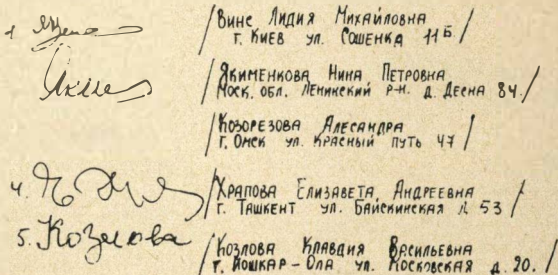 1
/ Винс Лидия Михайловна
г. Киев ул. Сошенка 11Б /
/ Якименкова Нина Петровна
Моск. обл. Ленинский р-н. д. Десна 84 /
/ Козорезова Алесандра
г. Омск ул. Красный путь 47 /
4.
/ Храпова Елизавета Андреевна
г. Ташкент ул. Байскинская д 53 /
5. Козлова
/ Козлова Клавдия Васильевна
г. Йошкар-Ола ул. Московская д. 20. /